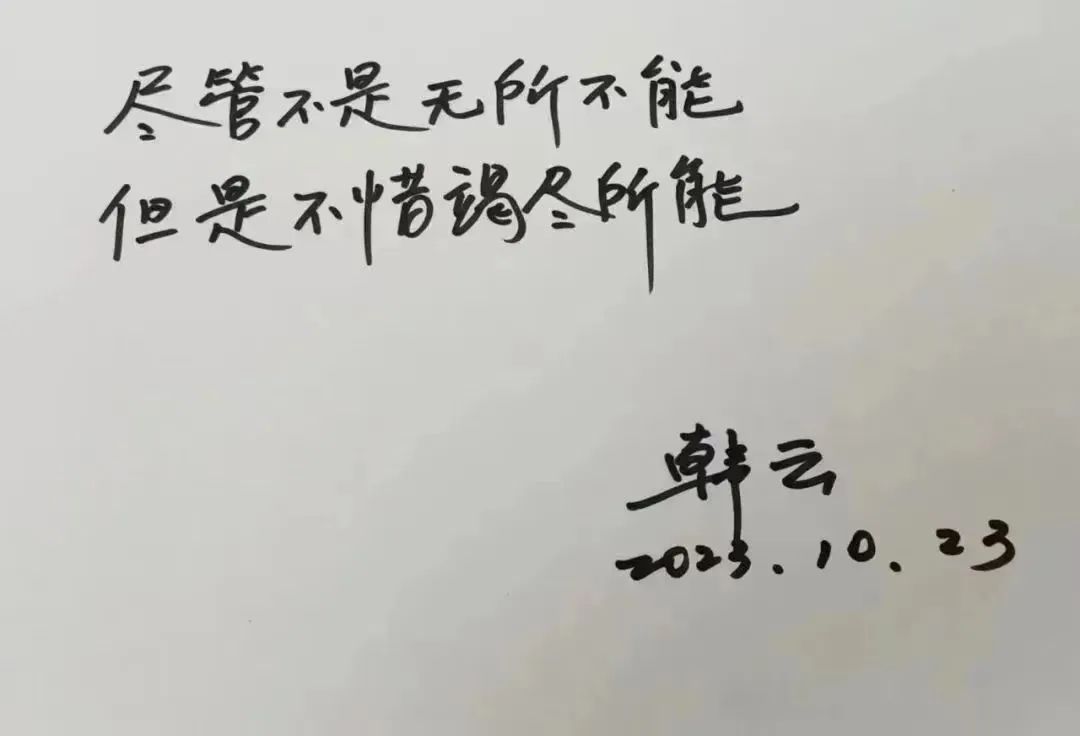 尽管不是无所不能
但是不惜竭尽所能
韩云
2023.10.23